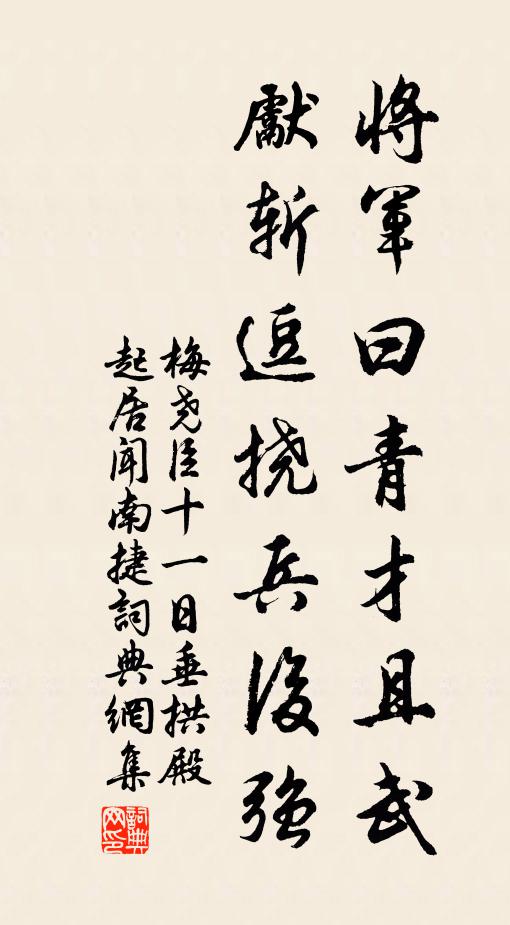 將軍曰青才且武
獻斬逗撓兵後強
梅尧臣十一日垂拱殿
起居聞南捷詞典網集
詞典
网印